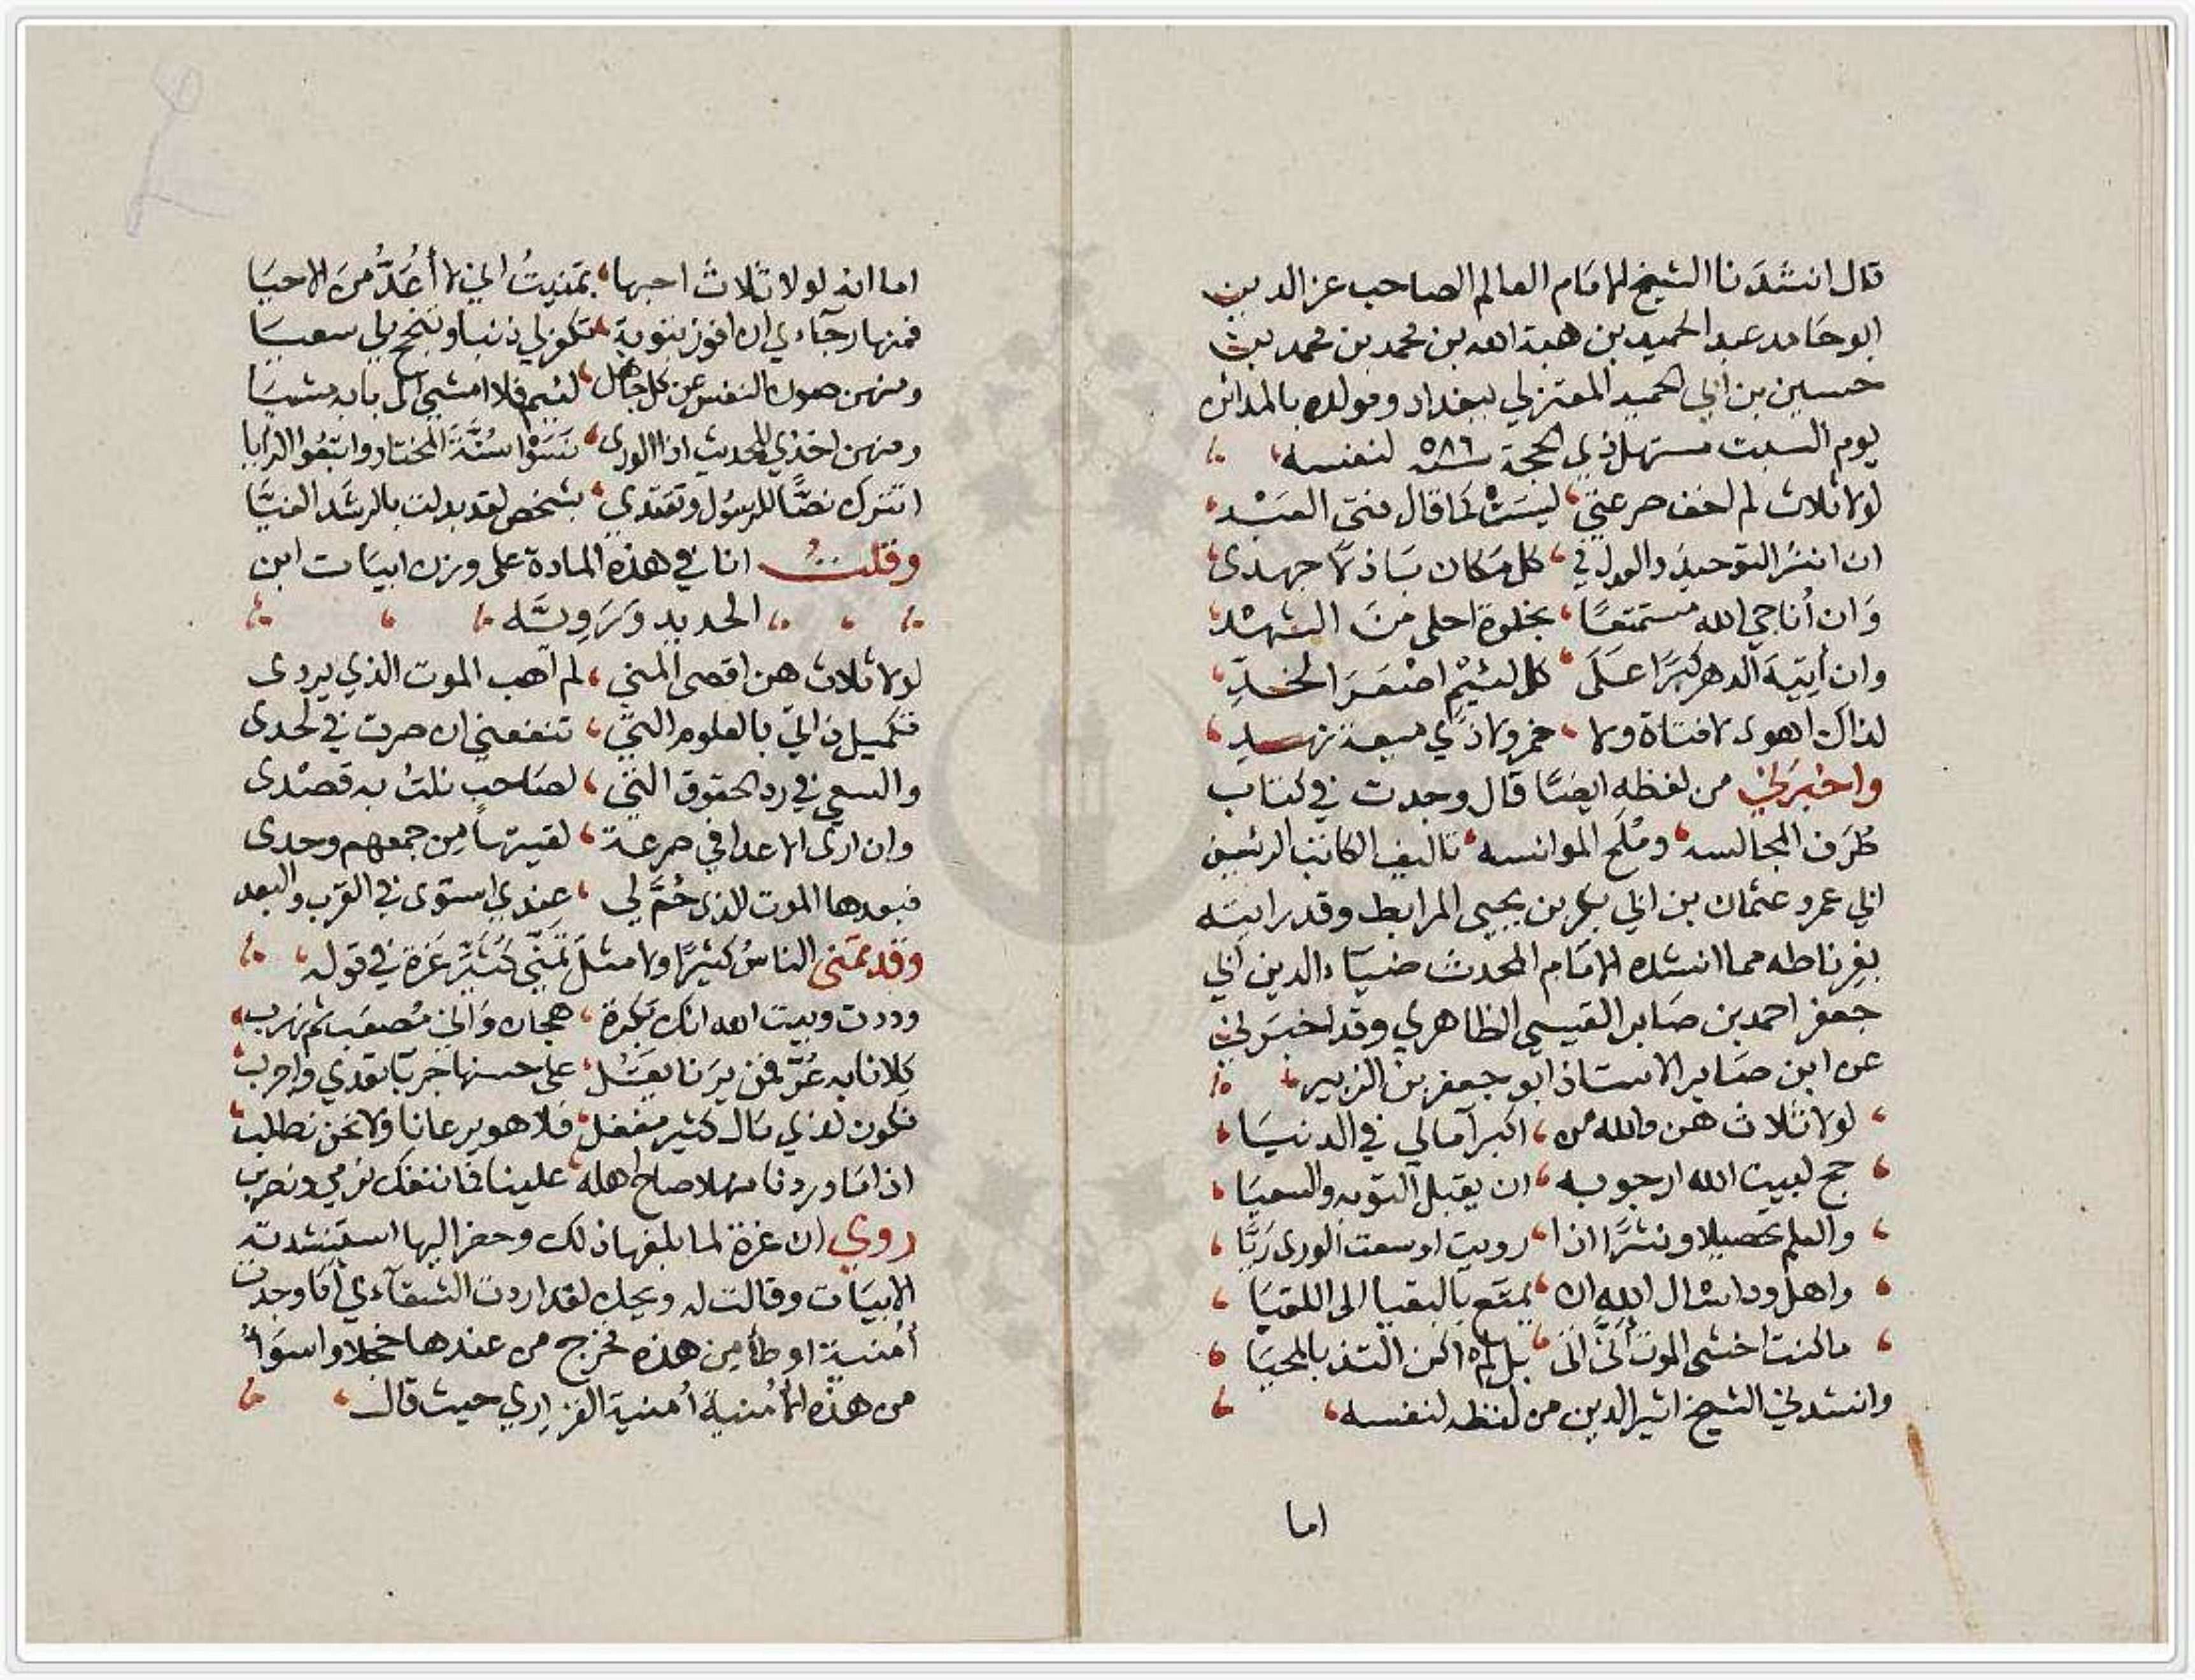 قال انشدنا الشيخ الامام العالم الصاحب عز الدين
ابو حامد عبد الحميد بن هبة الله بن محمد بن محمد بن
حسين بن ابي الحميد المعتزلي ببغداد ومولده بالمدائن
يوم السبت مستهل ذي الحجة سنة ٥٨٦ لنفسه
لولا ثلاث لم اخف صرعتي، ليست كما قال فتى العبد
ان انشر التوحيد والعدل في، كل مكان باذلا جهدى
وان أناجي الله مستمتعًا، بخلوة احلى من الشهد
وان أتيه الدهر كبرًا على، كل لئيم اصعر الخد
لذاك اهوى لا فتاة ولا، خمر ولا ذي ميعة نهد
واخبرني من لفظه ايضا قال وجدت في كتاب
طُرَف المجالسه، ومُلَح الموانسه، تاليف الكاتب الرئيس
ابي عمرو عثمان بن ابي بكر بن يحيى المرابط وقد رايته
بغرناطه مما انشده الامام المحدث ضياء الدين ابي
جعفر احمد بن صابر القيسي الظاهري وقد اخبرني
عن ابن صابر الاستاذ ابو جعفر بن الزبير
لولا ثلاث هن والله من، اكبر آمالي في الدنيا
حج لبيت الله ارجو به، ان يقبل التوبه والسعيا
والعلم تحصيلا ونشرًا اذا، رويت اوسعت الورى رَيًّا
واهل ود اسال الله ان، يمتع بالبقيا الى اللقيا
ما كنت اخشى الموت أنَّى اتى، بل لم اكن التذ بالمحيا
وانشدني الشيخ اثير الدين من لفظه لنفسه
اما
اما انه لولا ثلاث احبها، تمنيتُ اني لا أُعَدُّ من الاحيا
فمنها رجآءي ان افوز بتوبة، تكفر لي ذنبا وتنجح لي سعيا
ومنهن صون النفس عن كل جاهل، لئيم فلا امشي الى بابه مشيا
ومنهن اخذي للحديث اذا الورى، نَسَوْا سُنَّةَ المختار واتبعوا الرايا
اتترك نصًّا للرسول وتقتدي، بشخص لقد بدلت بالرشد الغيَّا
وقلتُ انا في هذه المادة على وزن ابيات ابن
ابي الحديد ورويه
لولا ثلاث هن اقصى المنى، لم اهب الموت الذي يردى
تكميل ذاتي بالعلوم التي، تنفعني ان صرت في لحدى
والسعي في رد الحقوق التي، لصاحب نلت به قصدى
وان ارى الاعدا في صرعة، لقيتها من جمعهم وحدى
فبعدها الموت الذى حُمَّ لي، عندي استوى في القرب والبعد
وقد تمنى الناسُ كثيرًا ولا مثل تمني كُثَيِّر عَزة في قوله
وددت وبيت الله انك بكرة، هجان واني مُصعَب ثم نهرب
كِلانا به عُرٌّ فمن يرنا يقُل، على حسنها جربا تعدي واجرب
نكون لذي مال كثير مغفل، فلا هو يرعانا ولا نحن نطلب
اذا ما وردنا منهلا صاح اهله، علينا فما ننفك نرمي ونضرب
روي ان عزة لما بلغها ذلك وحضر اليها استنشدته
الابيات وقالت له ويحك لقد اردت الشقآء بي أما وجدت
أمنية اوطأ من هذه فخرج من عندها خجلا واسوأُ
من هذه الأمنية أمنية الفزاري حيث قال